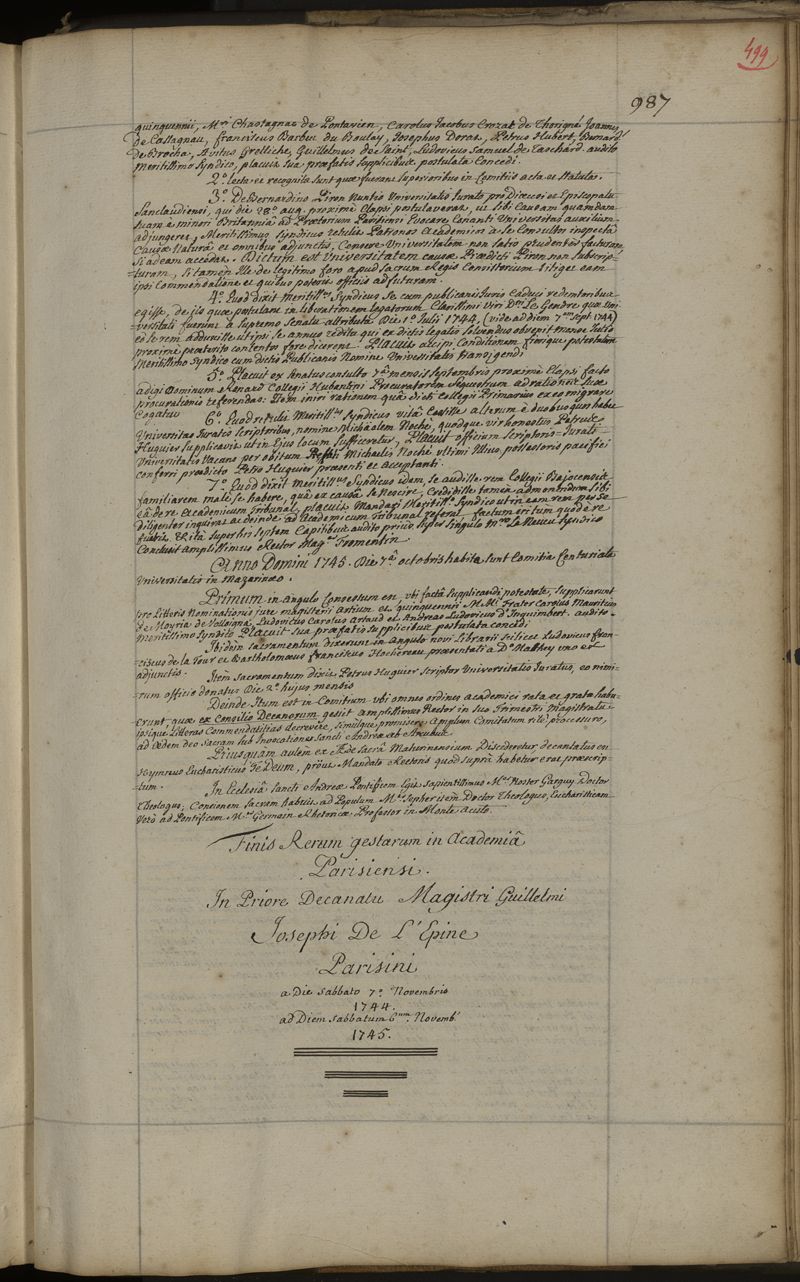 499
987
quinquennii, M.ri Chastagnac de Pontavien, Carolus Jacobus Crozat de Thorigné Joannes
de Cassagnau, franciscus Barbin du Boulay, Josephus Doras, Petrus Hubert, Bernard.
de Brocha, Avitus Grelliche, Guillelmus de Saint, Ludovicus Samuel de Taschard. audito
meritissimo Syndico, placuit sua præfatis supplicibus postulata Concedi.
2.o lecta et recognita sunt quæ fuerant superioribus in Comitiis acta et statuta.
3.o De Bernardino Piron Nuntio Universitatis Jurato pro Diœcesi et Episcopatu
Sanclaudiensi, qui die 28.a aug. proximè Elapsi postulaverat, ut sibi Causam quamdam
suam à minori Britanniâ ad Prætorium Parisiense Evocare Conanti Universitas auxilium
adjungeret, Meritissimus Syndicus retulit Patronos Academicos a se Consultos inspectâ
Causæ Naturâ et omnibus adjunctis, Censere Universitatem non satis prudenter facturam
si ad eam accedat. Dictum est Universitatem causæ Prædicti Piron non subscrip-
turam, si tamen ille de legitimo foro apud sacrum Regis Consistorium litiget eam
ipsi Commendatione et quibus poterit officiis adfuturam.
4.o Quod dixit meritiss.us Syndicus se cum publicanis Juris Caduci redemtoribus
egisse, de iis quæ postulant in liberationem legatorum Clarissimi viri D.ni Le Gendre quæ Uni-
versitati fuerunt à supremo Senatu attributa Die 1.a Julii 1744. (vide ad diem 7.am sept. 1744)
eò se rem adduxisse ut ipsi se annuo reditu qui ex dictis legatis solvendus obvenit mense Julio
proximè præterito contentos fore dicerent: Placuit accipi Conditionem, fierique potestatem
Meritissimo Syndico cum dictis Publicanis Nomine Universitatis transigendi
5.o Placuit ex Senatusconsulto 7.â mensis septembris proximè Elapsi facto
adigi Dominum Renard Collegii Hubantini Procuratorem Sequestrum ad rationes suæ
procurationis referendas: Item iniri rationem quâ dicti Collegii Primarius ex eo migrare
Cogatur
6.o Quod retulit Meritiss.us Syndicus vitâ Cessisse alterum è duobus quos habet
Universitas Juratos Scriptoribus, nomine Michaelem Noché, quodque vir honestus Petrus
Huguier supplicavit ut in Ejus locum sufficeretur, Placuit officium Scriptoris Jurati
Universitatis vacans per obitum Michaelis Noché ultimi illius possessoris pacifici
conferri prædicto Petro Huguier præsenti et acceptanti.
7.o Quod dixit Meritiss.us Syndicus idem, se audisse rem Collegii Bajocensis
familiarem male se habere, quâ ex causâ se Nescire, Credidisse tamen admonendum sibi
eâ de re Academicum Tribunal, placuit Mandari Meritiss.o Syndico ut in eam rem per se
diligenter inquirat ac deinde ad Academicum Tribunal referat factum iri tum quod è re
Et ità super his septem Capitibus audito prius super singulis M.ro Le Neveu Syndico
Conclusit amplissimus Rector Mag.er Fromentin
Anno Domini 1745. Die 7.â octobris habita sunt Comitia Centuriata
Universitatis in Mazarinæo.
Primum in angulo Conventum est, ubi factâ supplicandi potestate, supplicarunt
pro Litteris Nominationis jure magisterii Artium et quinquennii M.M.ri Frater Carolus Mauritius
de Moyria de Vollsigna, Ludovicus Carolus Artaud et Andreas Ludovicus D'Inguimbert. audito
meritissimo Syndico Placuit sua præfatis supplicibus postulata concedi
Ibidem sacramentum dixerunt in angulo novi Librarii scilicet Ludovicus fran-
ciscus de la Tour et Bartholomæus franciscus Hochereau præsentati a D.o Maltkey uno ex
adjunctis.
Item sacramentum dixit Petrus Huguier Scriptor Universitatis Juratus, eo nimi-
rum officio donatus Die 2.a hujus mensis
Deinde Itum est in Comitium ubi omnes ordines academici rata et grata habu-
erunt quæ ex Consilio Decanorum gessit amplissimus Rector in suo trimestri Magistratu
ipsique Litteras Commendatitias decrevere, simulque promisere amplum Comitatum ritè processuro,
ad Ædem deo Sacram sub Invocatione Sancti Andreæ ab Arcubus.
Priusquam autem ex Æde sacrâ Maturinensium Discederetur, decantatus est
Hymnus Eucharisticus Te Deum, prout Mandato Rectoris quod suprà habetur erat præscrip-
tum.
In Ecclesiâ Sancti Andreæ Pontificem Egit Sapientissimus M.er Noster Garguy Doctor
Theologus, Concionem sacram habuit ad Populum M.er Sepher item Doctor Theologus, Eucharisticam
Verò ad Pontificem M.er Germain Rhetoricæ Professor in Monte acuto.
Finis Rerum gestarum in Academiâ
Parisiensi.
In Priore Decanatu Magistri Guillelmi
Josephi De L'Epine
Parisini
a Die Sabbato 7.o Novembris
1744.
ad Diem Sabbatum 6.um Novemb.
1745.